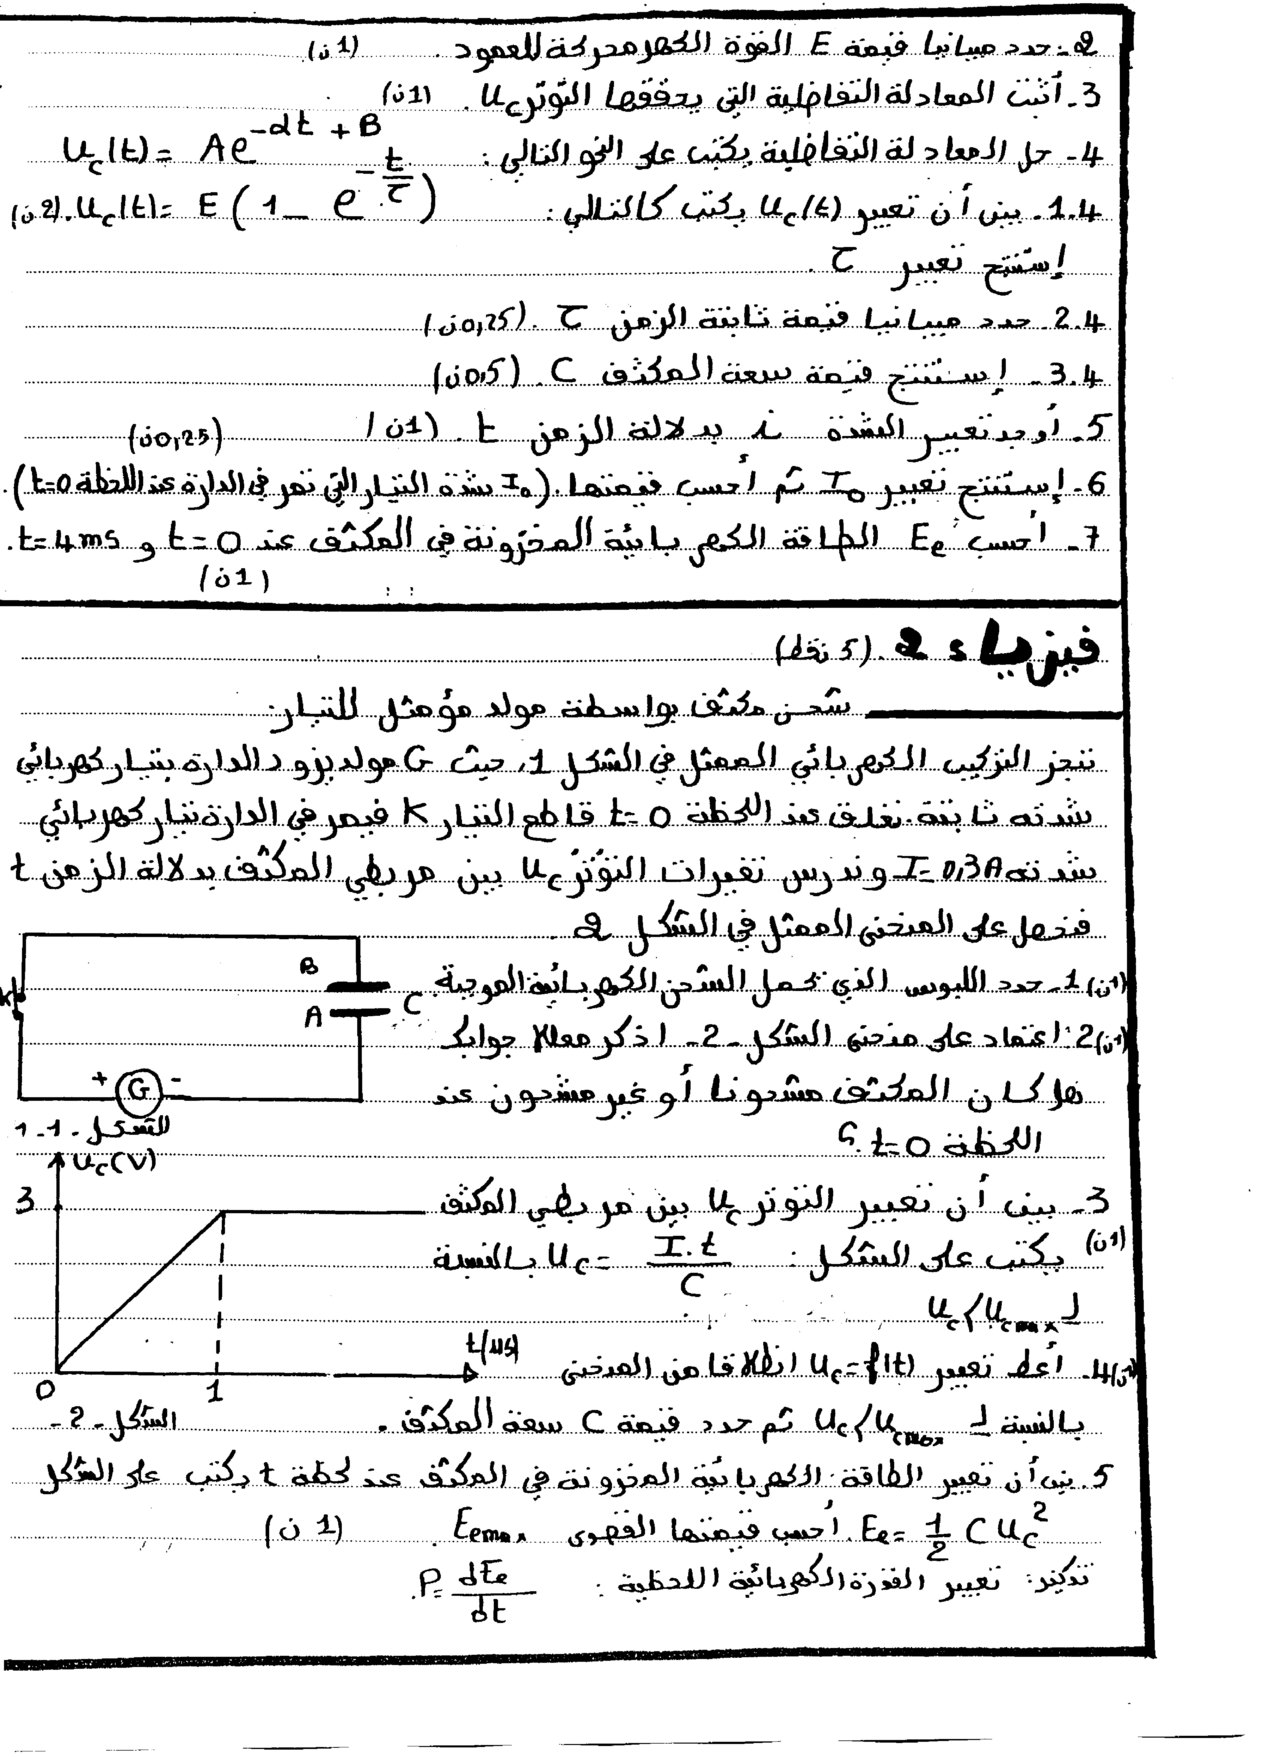 2- حدد مبيانيا قيمة E القوة الكهرمحركة للعمود. (1ن)
3- أثبت المعادلة التفاضلية التي يحققها التوتر Uc. (1ن)
4- حل المعادلة التفاضلية يكتب على النحو التالي: Uc(t)= Ae^{-αt} + B
1.4- بين أن تعبير Uc(t) يكتب كالتالي: Uc(t)= E(1- e^{-t/τ}). (2ن)
إستنتج تعبير τ.
2.4- حدد مبيانيا قيمة ثابتة الزمن τ. (0,25ن)
3.4- إستنتج قيمة سعة المكثف C. (0,5ن)
5- أوجد تعبير الشدة i بدلالة الزمن t. (1ن) (0,25ن)
6- إستنتج تعبير I₀ ثم أحسب قيمتها. (I₀ شدة التيار التي تمر في الدارة عند اللحظة t=0).
7- أحسب Ee الطاقة الكهربائية المخزونة في المكثف عند t=0 و t=4ms.
(1ن)
فيزياء 2. (5 نقط)
شحن مكثف بواسطة مولد مؤمثل للتيار:
ننجز التركيب الكهربائي الممثل في الشكل 1، حيث G مولد يزود الدارة بتيار كهربائي
شدته ثابتة. نغلق عند اللحظة t=0 قاطع التيار K فيمر في الدارة تيار كهربائي
شدته I=0,3A وندرس تغيرات التوتر Uc بين مربطي المكثف بدلالة الزمن t
فنحصل على المنحنى الممثل في الشكل 2.
1- حدد اللبوس الذي يحمل الشحن الكهربائية الموجبة. (1ن)
2- اعتماد على منحنى الشكل -2- اذكر معللا جوابك (1ن)
هل كان المكثف مشحونا أو غير مشحون عند
اللحظة t=0؟
B
A
C
K
+ G -
الشكل -1-
3- بين أن تعبير التوتر Uc بين مربطي المكثف
يكتب على الشكل: Uc= I.t/C بالنسبة (1ن)
ل Uc<Ucmax
4- أعط تعبير Uc=f(t) انطلاقا من المنحنى (1ن)
بالنسبة ل Uc<Ucmax ثم حدد قيمة C سعة المكثف.
Uc(V)
3
0
1
t(µs)
الشكل -2-
5- بين أن تعبير الطاقة الكهربائية المخزونة في المكثف عند لحظة t يكتب على الشكل
Ee= 1/2 C Uc². أحسب قيمتها القصوى Eemax (1 ن)
تذكير: تعبير القدرة الكهربائية اللحظية: P= dEe/dt.